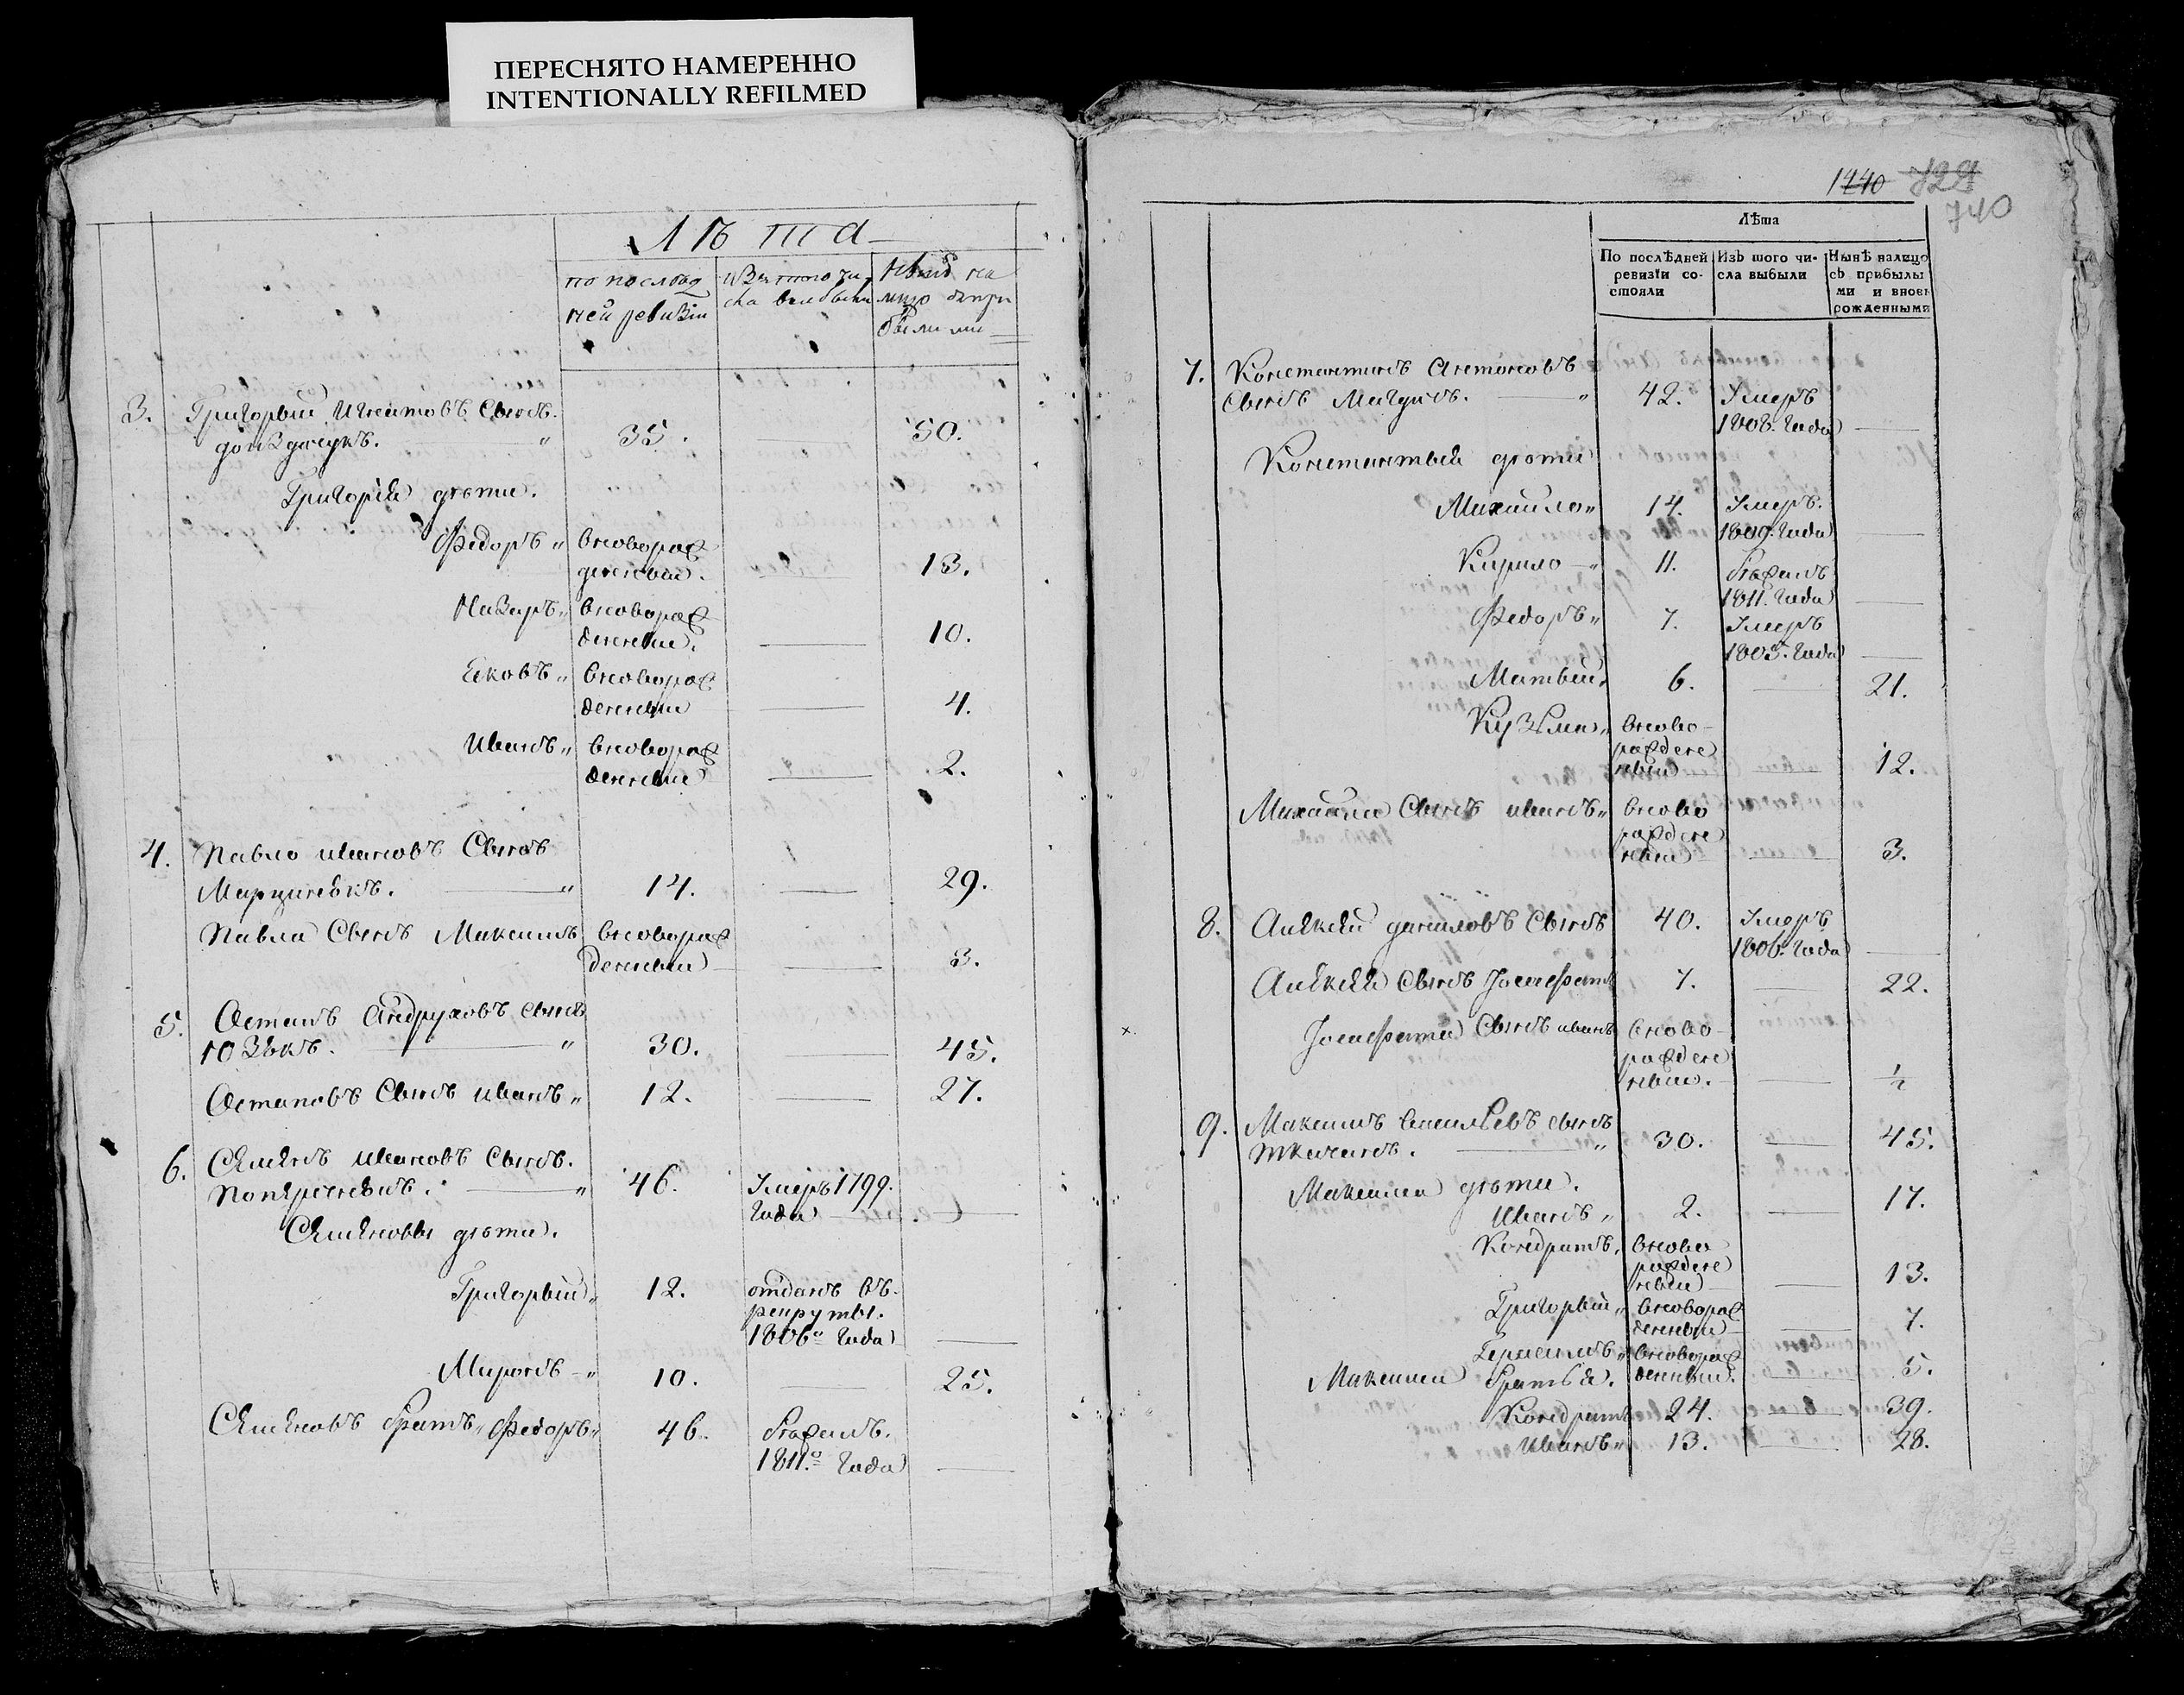 ПЕРЕСНЯТО НАМЕРЕННО
INTENTIONALLY REFILMED
Лѣта
по послѣд
ней ревизіи
изъ того чи
сла выбыли
нынѣ на
лицо съ при
былыми
3. Григорый Игнатовъ Сынъ
35. 50.
Григорія дѣти.
Федоръ вновораж
денный. 13.
Назаръ вновораж
денный. 10.
Яковъ вновораж
денный 4.
Иванъ вновораж
денный 2.
4. Павло Ивановъ Сынъ
Марцинюкъ. 14. 29.
Павла Сынъ Максимъ вновораж
денный 3.
5. Остапъ Андруховъ сынъ
30. 45.
Остаповъ Сынъ Иванъ 12. 27.
6. Семенъ Ивановъ Сынъ.
46. Умеръ 1799.
года
Семеновы дѣти.
Григорый 12. отданъ въ
рекруты.
1806го года
Миронъ 10. 25.
Семеновъ братъ Федоръ 46. бѣжалъ.
1811го года
1440 729
740
Лѣта
По послѣдней
ревизіи со-
стояли
Изъ того чи-
сла выбыли
Нынѣ налицо
съ прибылы
ми и вновь
рожденными
7. Константинъ Антоновъ
сынъ 42. Умеръ
1808. года
Константыя дѣти
Михайло 14. Умеръ.
1809. года
Кирило 11. бѣжалъ
1811. года
Федоръ 7. Умеръ
1803. года
Матвей 6. 21.
Кузьма вново
ражден
ный 12.
Михайла Сынъ иванъ вново
ражден
ный 3.
8. Алексей даниловъ Сынъ 40. Умеръ
1806. года
Алексея Сынъ Іосафатъ 7. 22.
Іосафата Сынъ иванъ вново
ражден
ный. ½
9. Максимъ Васильевъ сынъ
30. 45.
Максима дѣти.
Иванъ 2. 17.
Кондратъ вново
ражден
ный 13.
Григорый вновораж
денный 7.
Герасимъ вновораж
денный. 5.
Максима братья.
Кондратъ 24. 39.
Иванъ 13. 28.